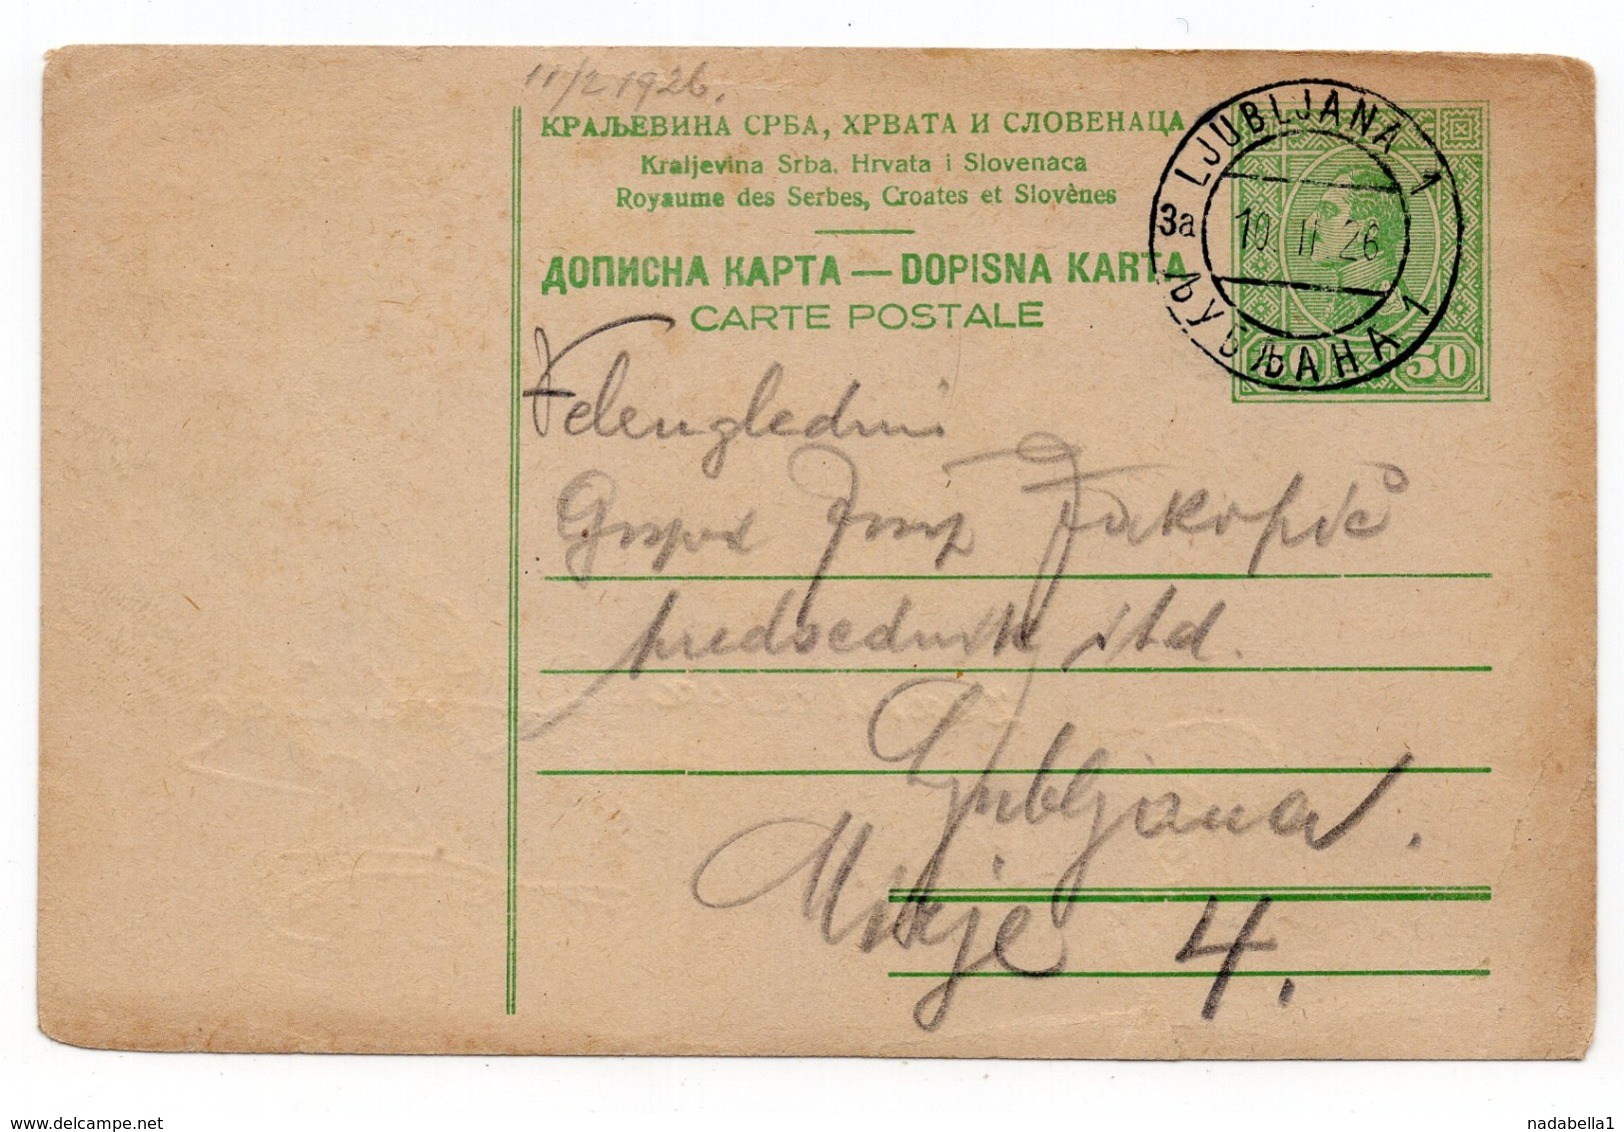 11/2 1926.
КРАЉЕВИНА СРБА, ХРВАТА И СЛОВЕНАЦА
Kraljevina Srba, Hrvata i Slovenaca
Royaume des Serbes, Croates et Slovènes
ДОПИСНА КАРТА — DOPISNA KARTA
CARTE POSTALE
LJUBLJANA 1
3a
10 II 26
ЉУБЉАНА 1
50 50
Velengledni
Gospod Jakopič
predsednik itd.
Ljubljana.
Mirje 4.
nadabella1